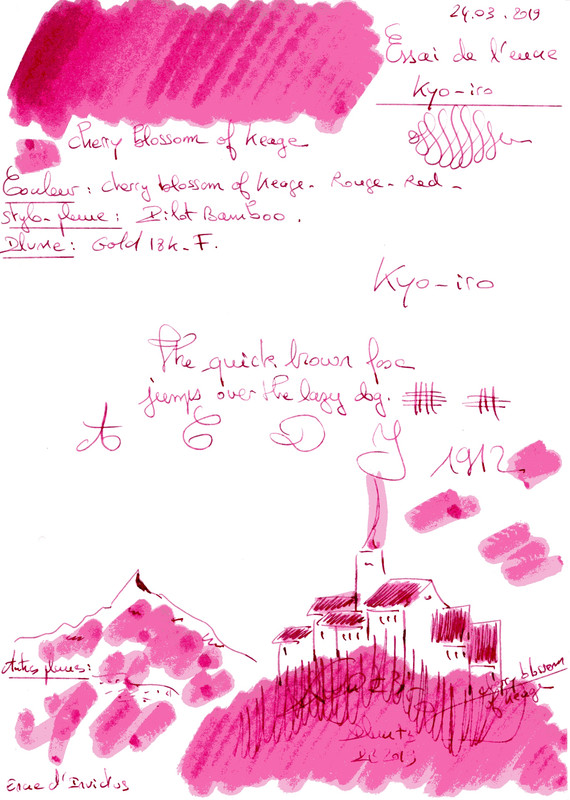 24.03.2019
Essai de l'encre
Kyo-iro
Cherry Blossom of Keage
Couleur : cherry blossom of Keage - Rouge - Red -
stylo-plume : Pilot Bamboo.
Plume : Gold 18k - F.
Kyo-iro
The quick brown fox
jumps over the lazy dog.
A E D J 1912
Autres plumes :
cherry blossom
of Keage
2019
Encre d'Invictus